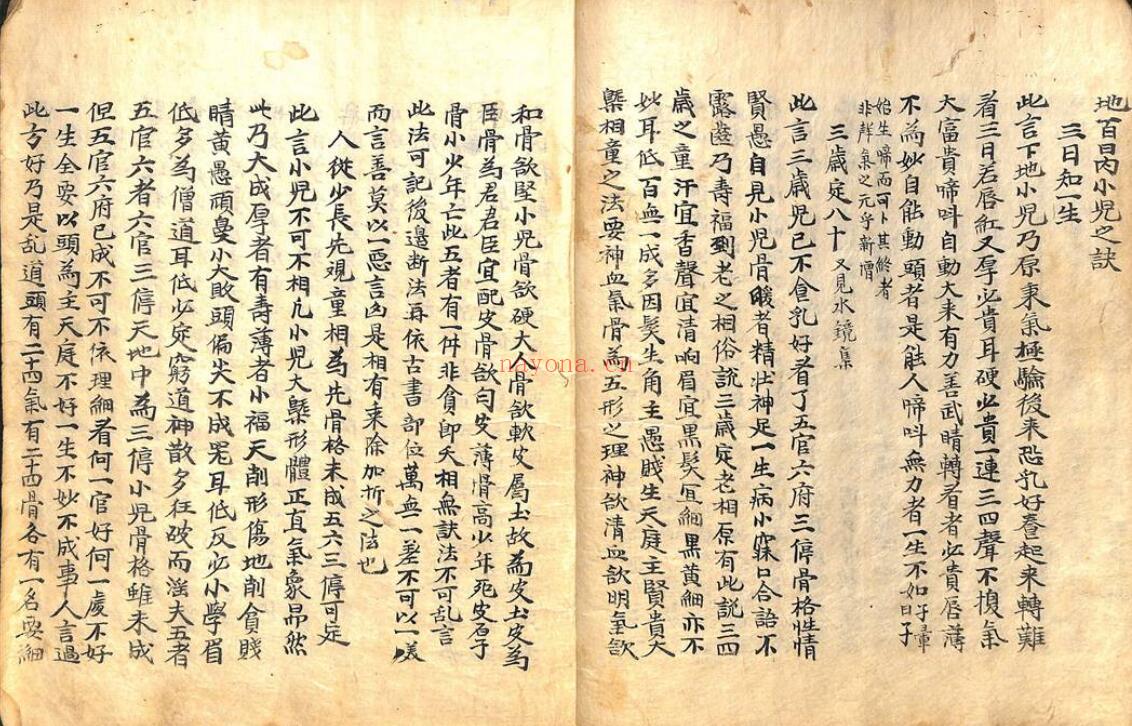 地百日內小兒之訣
三日知一生
此言下地小兒乃原秉氣極驗後來恐乳好養起來轉難
看三日若唇紅又厚必貴耳硬必貴一連三四聲不換氣
大富貴啼呌自動大來有力善武睛轉者者必貴唇薄
不為妙自能動頭者是能人啼呌無力者一生不如日子
始生啼而可卜其終者
非醇氣之元乎新增
三歲定八十 又見水鏡集
此言三歲兒已不食乳好看了五官六府三停骨格性情
賢愚自見小兒骨暖者精壯神足一生病小寐口合語不
露齒乃壽福到老之相俗說三歲定老相原有此說三四
歲之童汗宜香聲宜清响眉宜黑髮宜細黑黃細亦不
妙耳低百無一成多因髮生角主愚賤生天庭主賢貴大
槩相童之法要神血氣骨為五形之理神欲清血欲明氣欲
和骨欲堅小兒骨欲硬大人骨欲軟皮屬土故為皮土皮為
臣骨為君君臣宜配皮骨欲勻皮薄骨高少年死皮厚
骨小少年亡此五者有一件非貧即夭相無訣法不可乱言
此法可記後邊断法再依古書部位萬無一差不可以一美
而言善莫以一惡言凶是相有乘除加折之法也
人從少長先視童相為先骨格未成五六三停可定
此言小兒不可不相凡小兒大槩形體正直氣象昂然
此乃大成厚者有壽薄者小福天削形傷地削貪賤
睛黃愚頑鼻小大敗頭偏尖不成器耳低反必小學眉
低多為僧道耳低必定窮道神散多狂破而淫夫五者
五官六者六官三停天地中為三停小兒骨格雖未成
但五官六府已成不可不依理細看何一官好何一處不好
一生全要以頭為主天庭不好一生不妙不成事人言過
此方好乃是乱道頭有二十四氣有二十四骨各有一名要細
nayona.cn